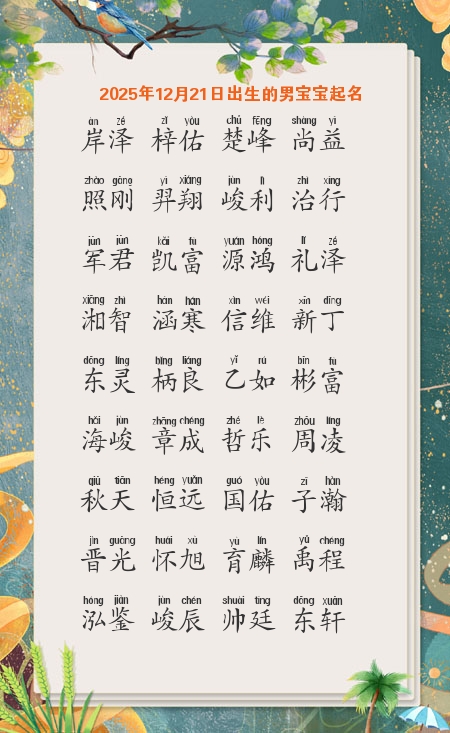 2025年12月21日出生的男宝宝起名
àn zé zǐ yòu chǔ fēng shàng yì
岸泽 梓佑 楚峰 尚益
zhào gāng yì xiáng jùn lì zhì xíng
照刚 羿翔 峻利 治行
jūn jūn kǎi fù yuán hóng lǐ zé
军君 凯富 源鸿 礼泽
xiāng zhì hán hán xìn wéi xīn dīng
湘智 涵寒 信维 新丁
dōng líng bǐng liáng yǐ rú bīn fù
东灵 柄良 乙如 彬富
hǎi jùn zhāng chéng zhé lè zhōu líng
海峻 章成 哲乐 周凌
qiū tiān héng yuǎn guó yòu zǐ hàn
秋天 恒远 国佑 子瀚
jìn guāng huái xù yù lín yǔ chéng
晋光 怀旭 育麟 禹程
hóng jiàn jùn chén shuài tíng dōng xuān
泓鉴 峻辰 帅廷 东轩